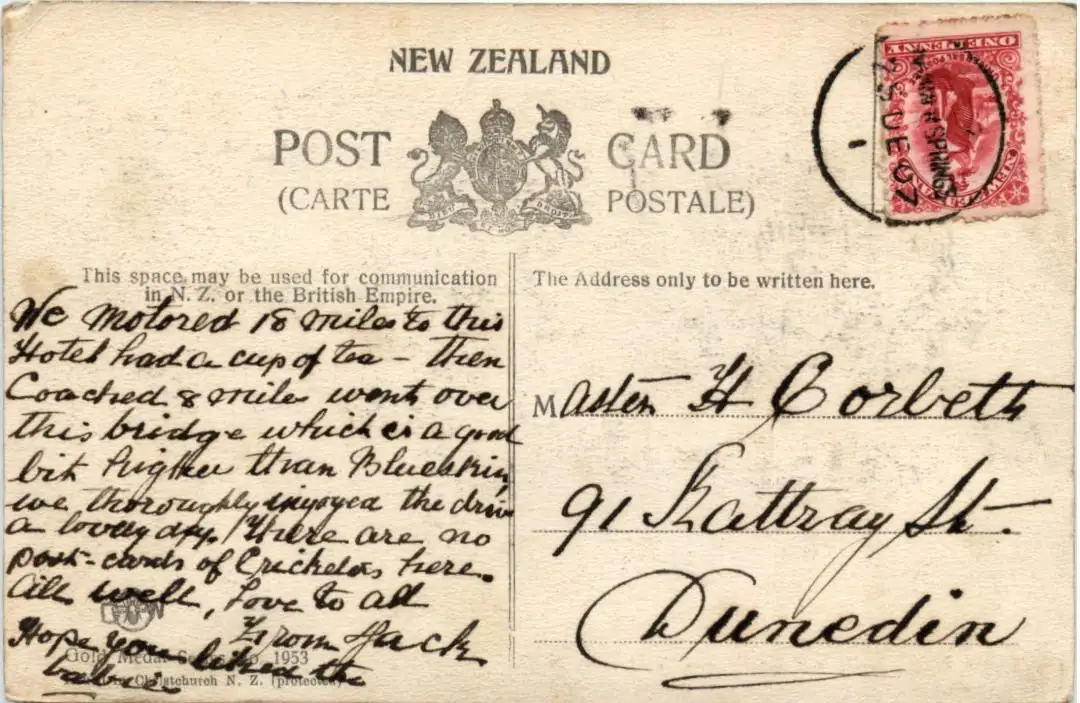 NEW ZEALAND
POST CARD
(CARTE POSTALE)
ONE PENNY
SPRINGS
DE 07
This space may be used for communication
in N. Z. or the British Empire.
The Address only to be written here.
We motored 18 miles to this
Hotel had a cup of tea – then
Coached 8 miles went over
this bridge which is a good
bit higher than Blueskin,
we thoroughly enjoyed the drive
a lovely day. There are no
post-cards of Cricketers here.
All well, Love to all
From Jack
Hope you liked the
Master H Corbett
91 Rattray St.
Dunedin
Gold Medal Series No 1953
Christchurch N. Z. (protected)